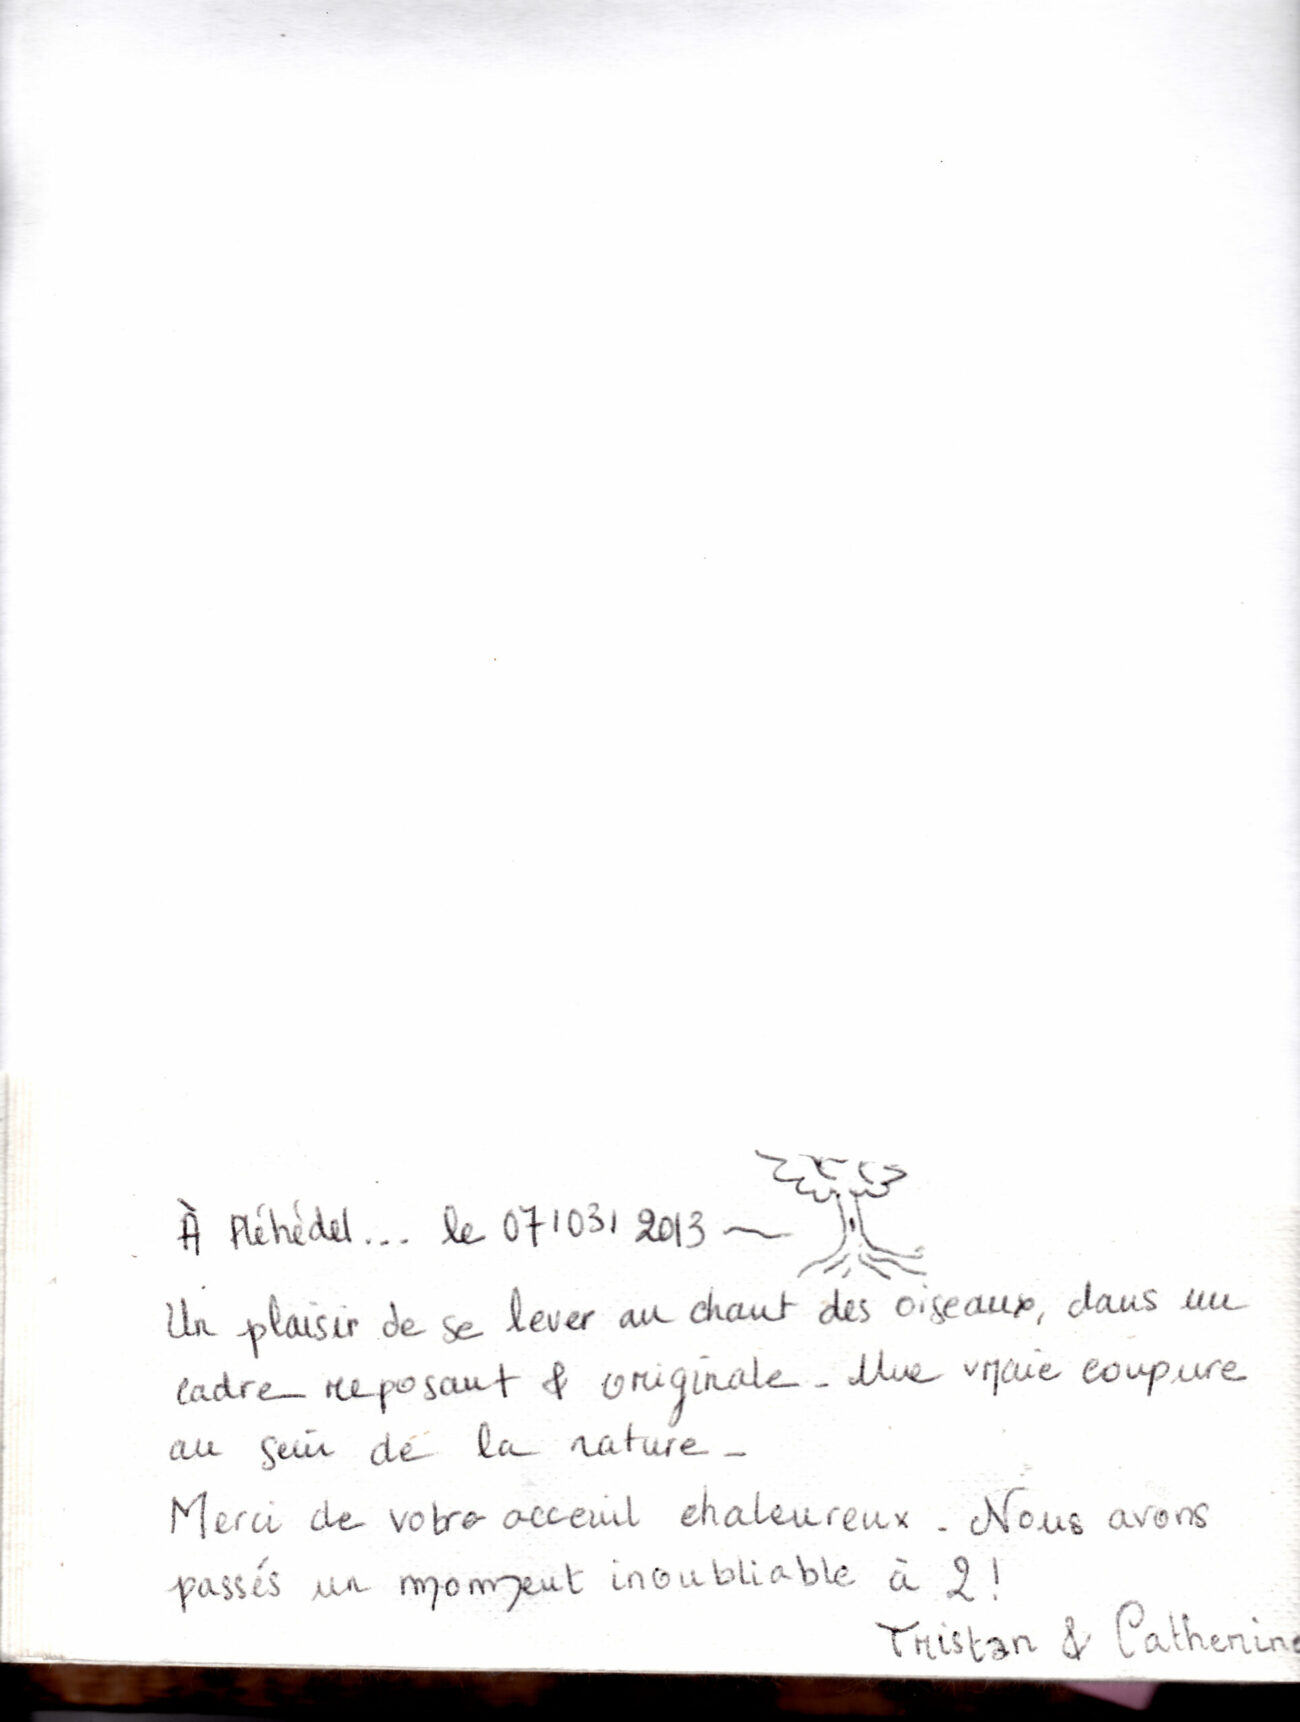 À Pléhédel... le 07/03/2013 ~
Un plaisir de se lever au chant des oiseaux, dans un
cadre reposant & originale - Une vraie coupure
au sein de la nature -
Merci de votre acceuil chaleureux. Nous avons
passés un moment inoubliable à 2 !
Tristan & Catherine